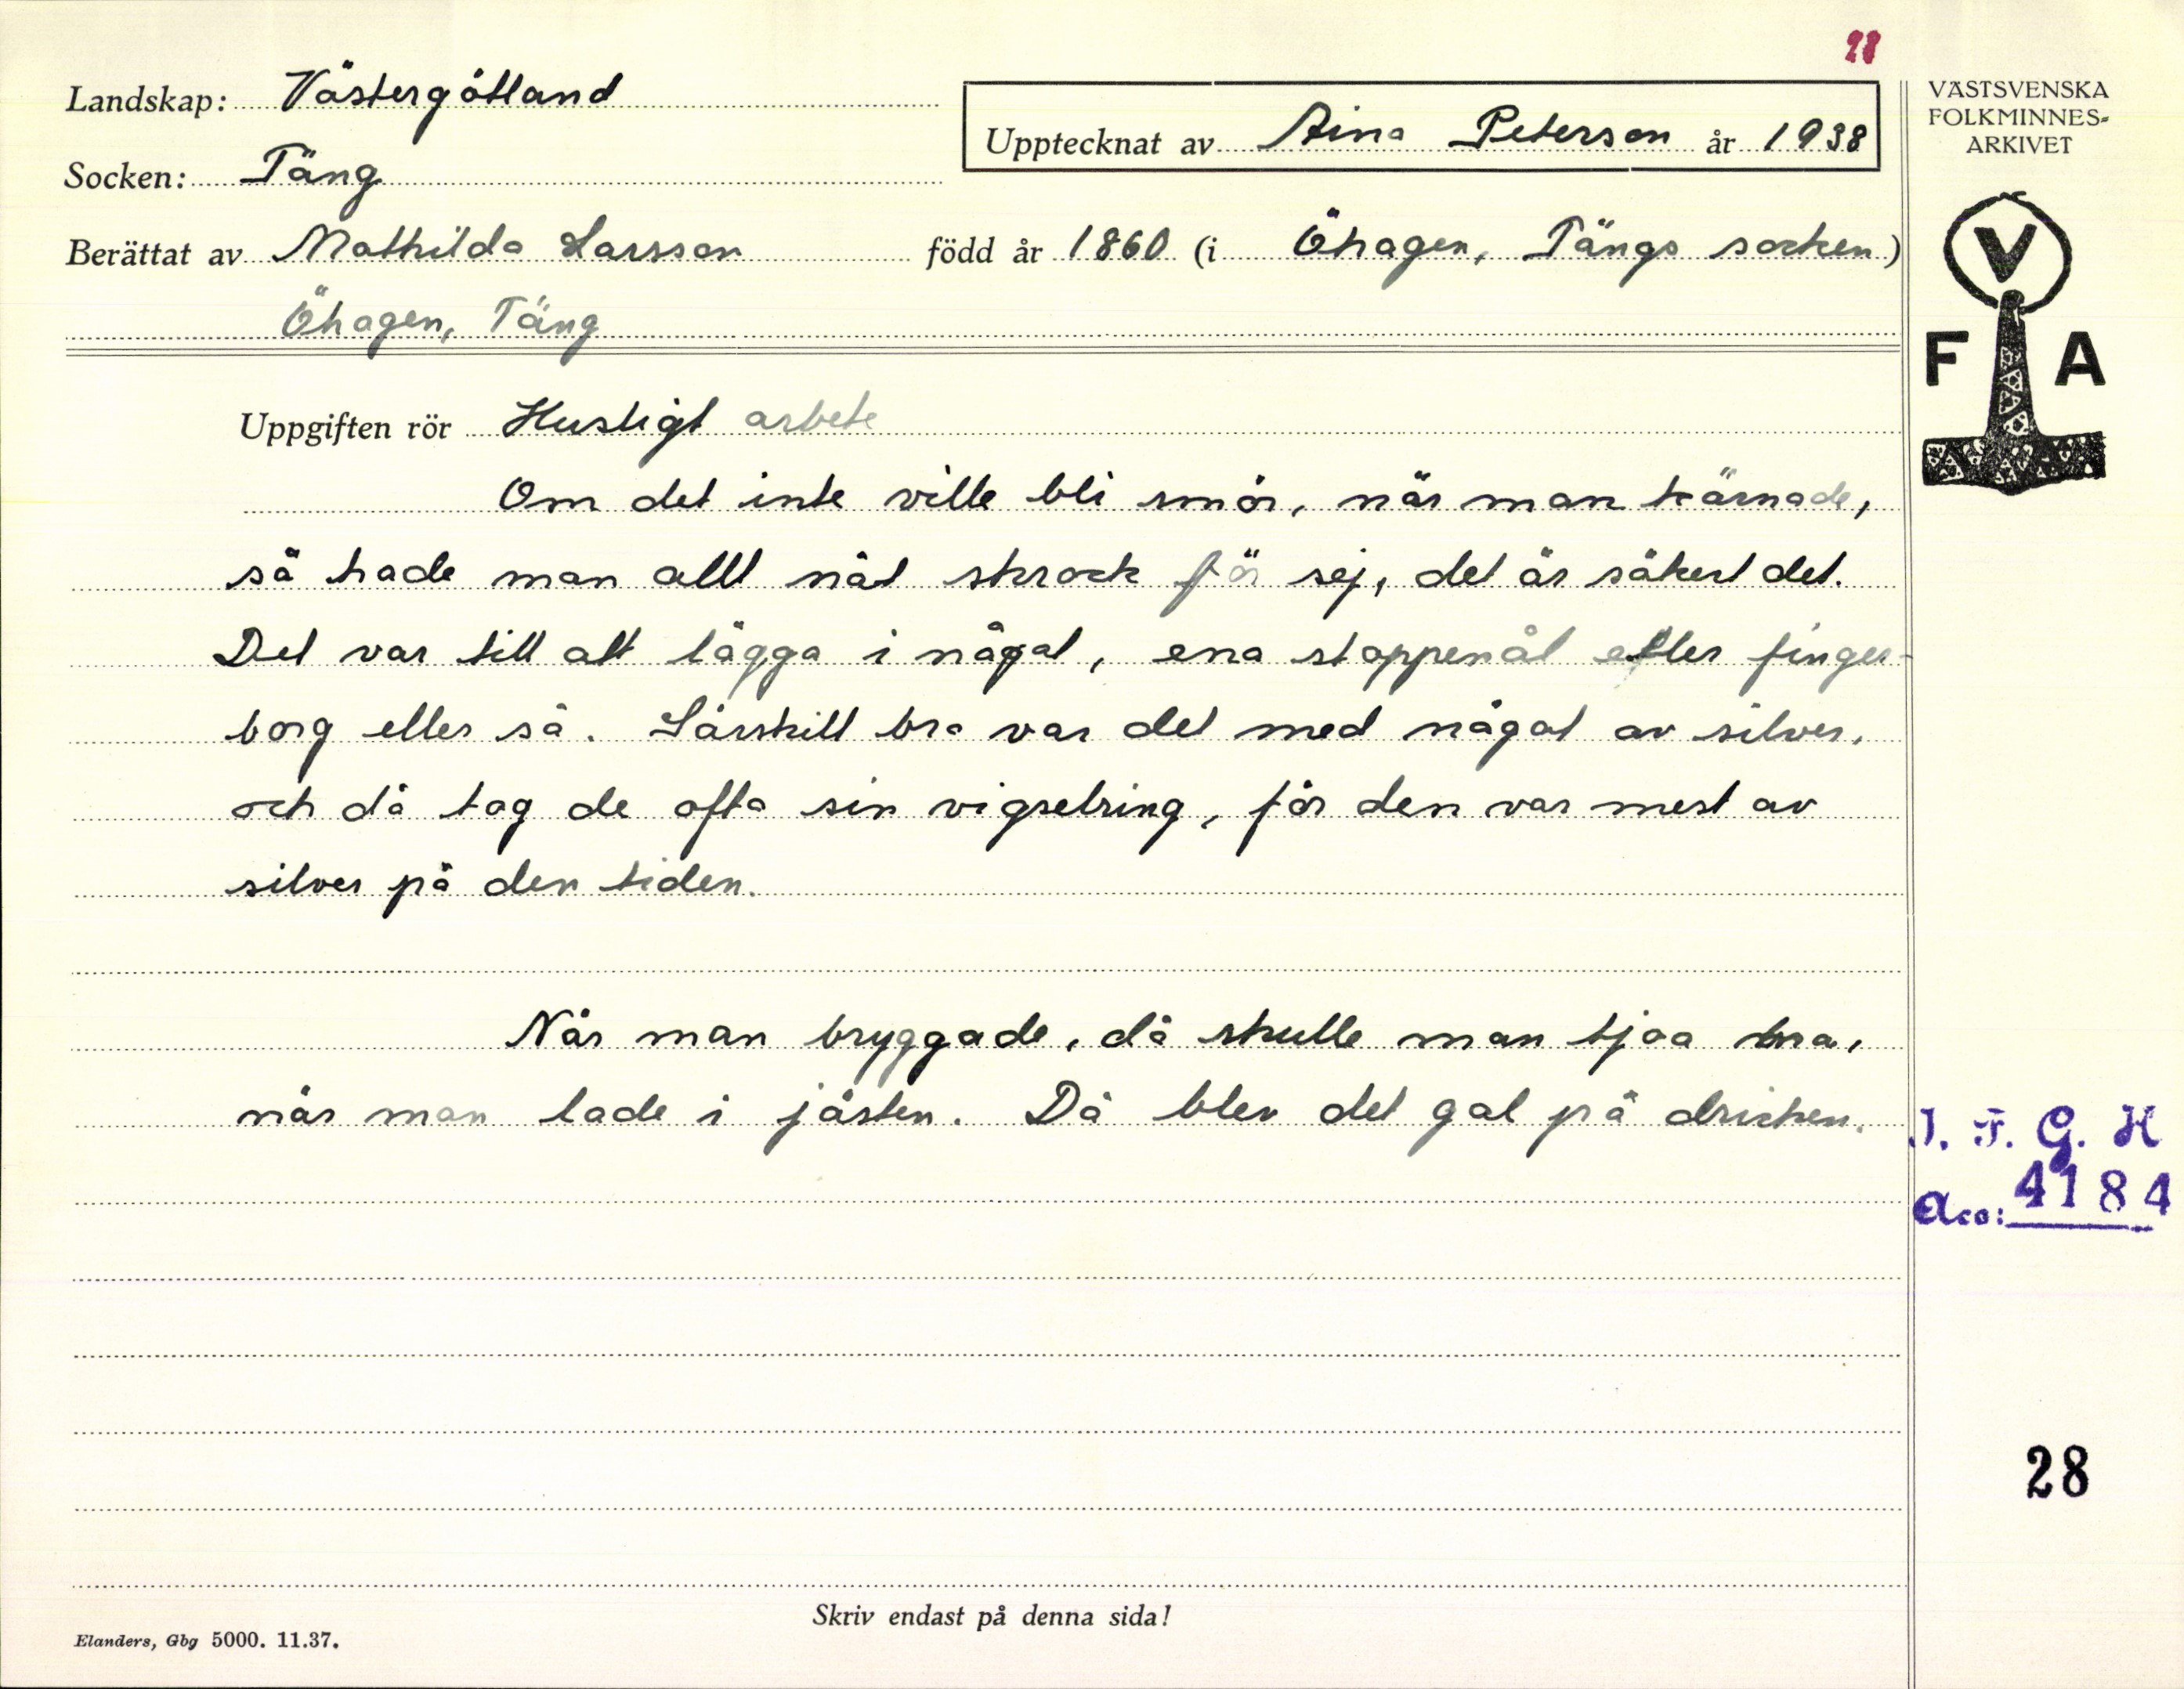 28
Landskap: Västergötland
Upptecknat av Aina Peterson år 1938
Socken: Täng
Berättat av Mathilda Larsson född år 1860 (i Öhagen, Tängs socken)
Öhagen, Täng
VÄSTSVENSKA
FOLKMINNES-
ARKIVET
V
F A
Uppgiften rör Husligt arbete
Om det inte ville bli smör, när man kärnade,
så hade man allt nåt skrock för sej, det är säkert det.
Det var till att lägga i något, ena stoppenål eller finger-
borg eller så. Särskilt bra var det med något av silver,
och då tog de ofta sin vigselring, för den var mest av
silver på den tiden.
När man bryggade, då skulle man tjoa bra,
när man lade i jästen. Då blev det gal på dricken.
I. F. G. H
Acc: 4184
28
Skriv endast på denna sida!
Elanders, Gbg 5000. 11.37.